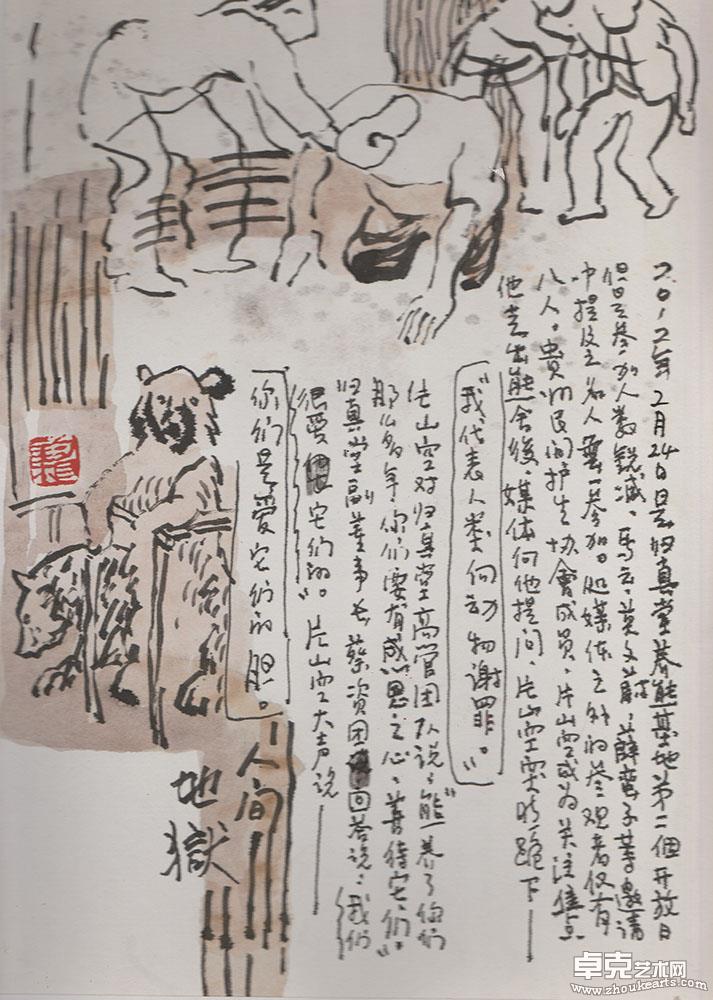 2012年2月24日是归真堂养熊基地第二個开放日
但是参加人数锐减。马云、莫文蔚、薛蛮子等邀请
中提及之名人無一参加。处媒体之外的参观者仅有
八人。贵州民间护生协會成员、片山空成为关注焦点
他走出熊舍後、媒体向他提问、片山空突然跪下——
“我代表人类向动物谢罪。”
片山空对归真堂高管团队说“熊养了你们
那么多年、你们要有感恩之心、善待它们”
归真堂副董事长蔡资团回答说：“我们
很爱它们的。”片山空大声说——
你们是爱它们的胆。
人间
地獄
卓克艺术网
www.zhoukearts.com